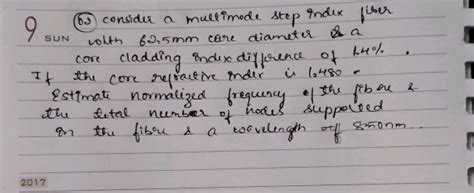 9 SUN
6.3 consider a multimode step index fiber
with 62.5mm core diameter & a
core cladding index difference of 1.4%.
If the core refractive index is 1.480.
Estimate normalized frequency of the fibre &
the total number of nodes supported
in the fibre & a wavelength of 850nm.
2017